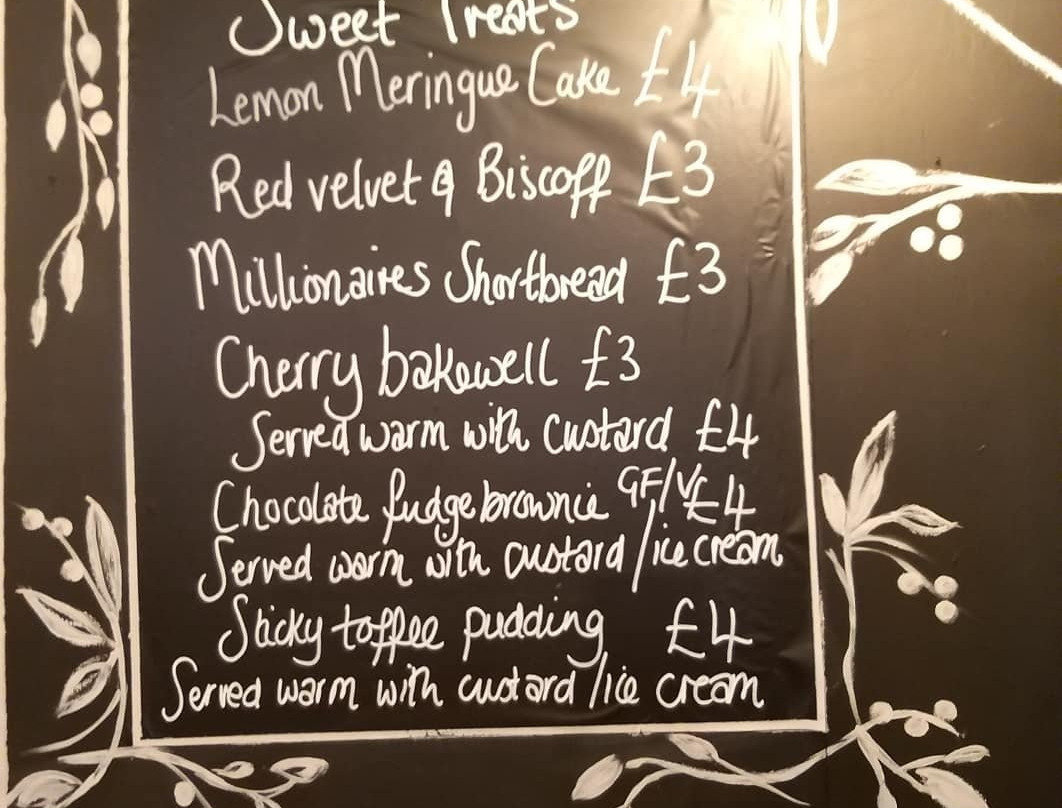 Sweet Treats
Lemon Meringue Cake £4
Red velvet & Biscoff £3
Millionaires Shortbread £3
Cherry bakewell £3
Served warm with custard £4
Chocolate fudge brownie GF/V £4
Served warm with custard/ice cream
Sticky toffee pudding £4
Served warm with custard/ice cream